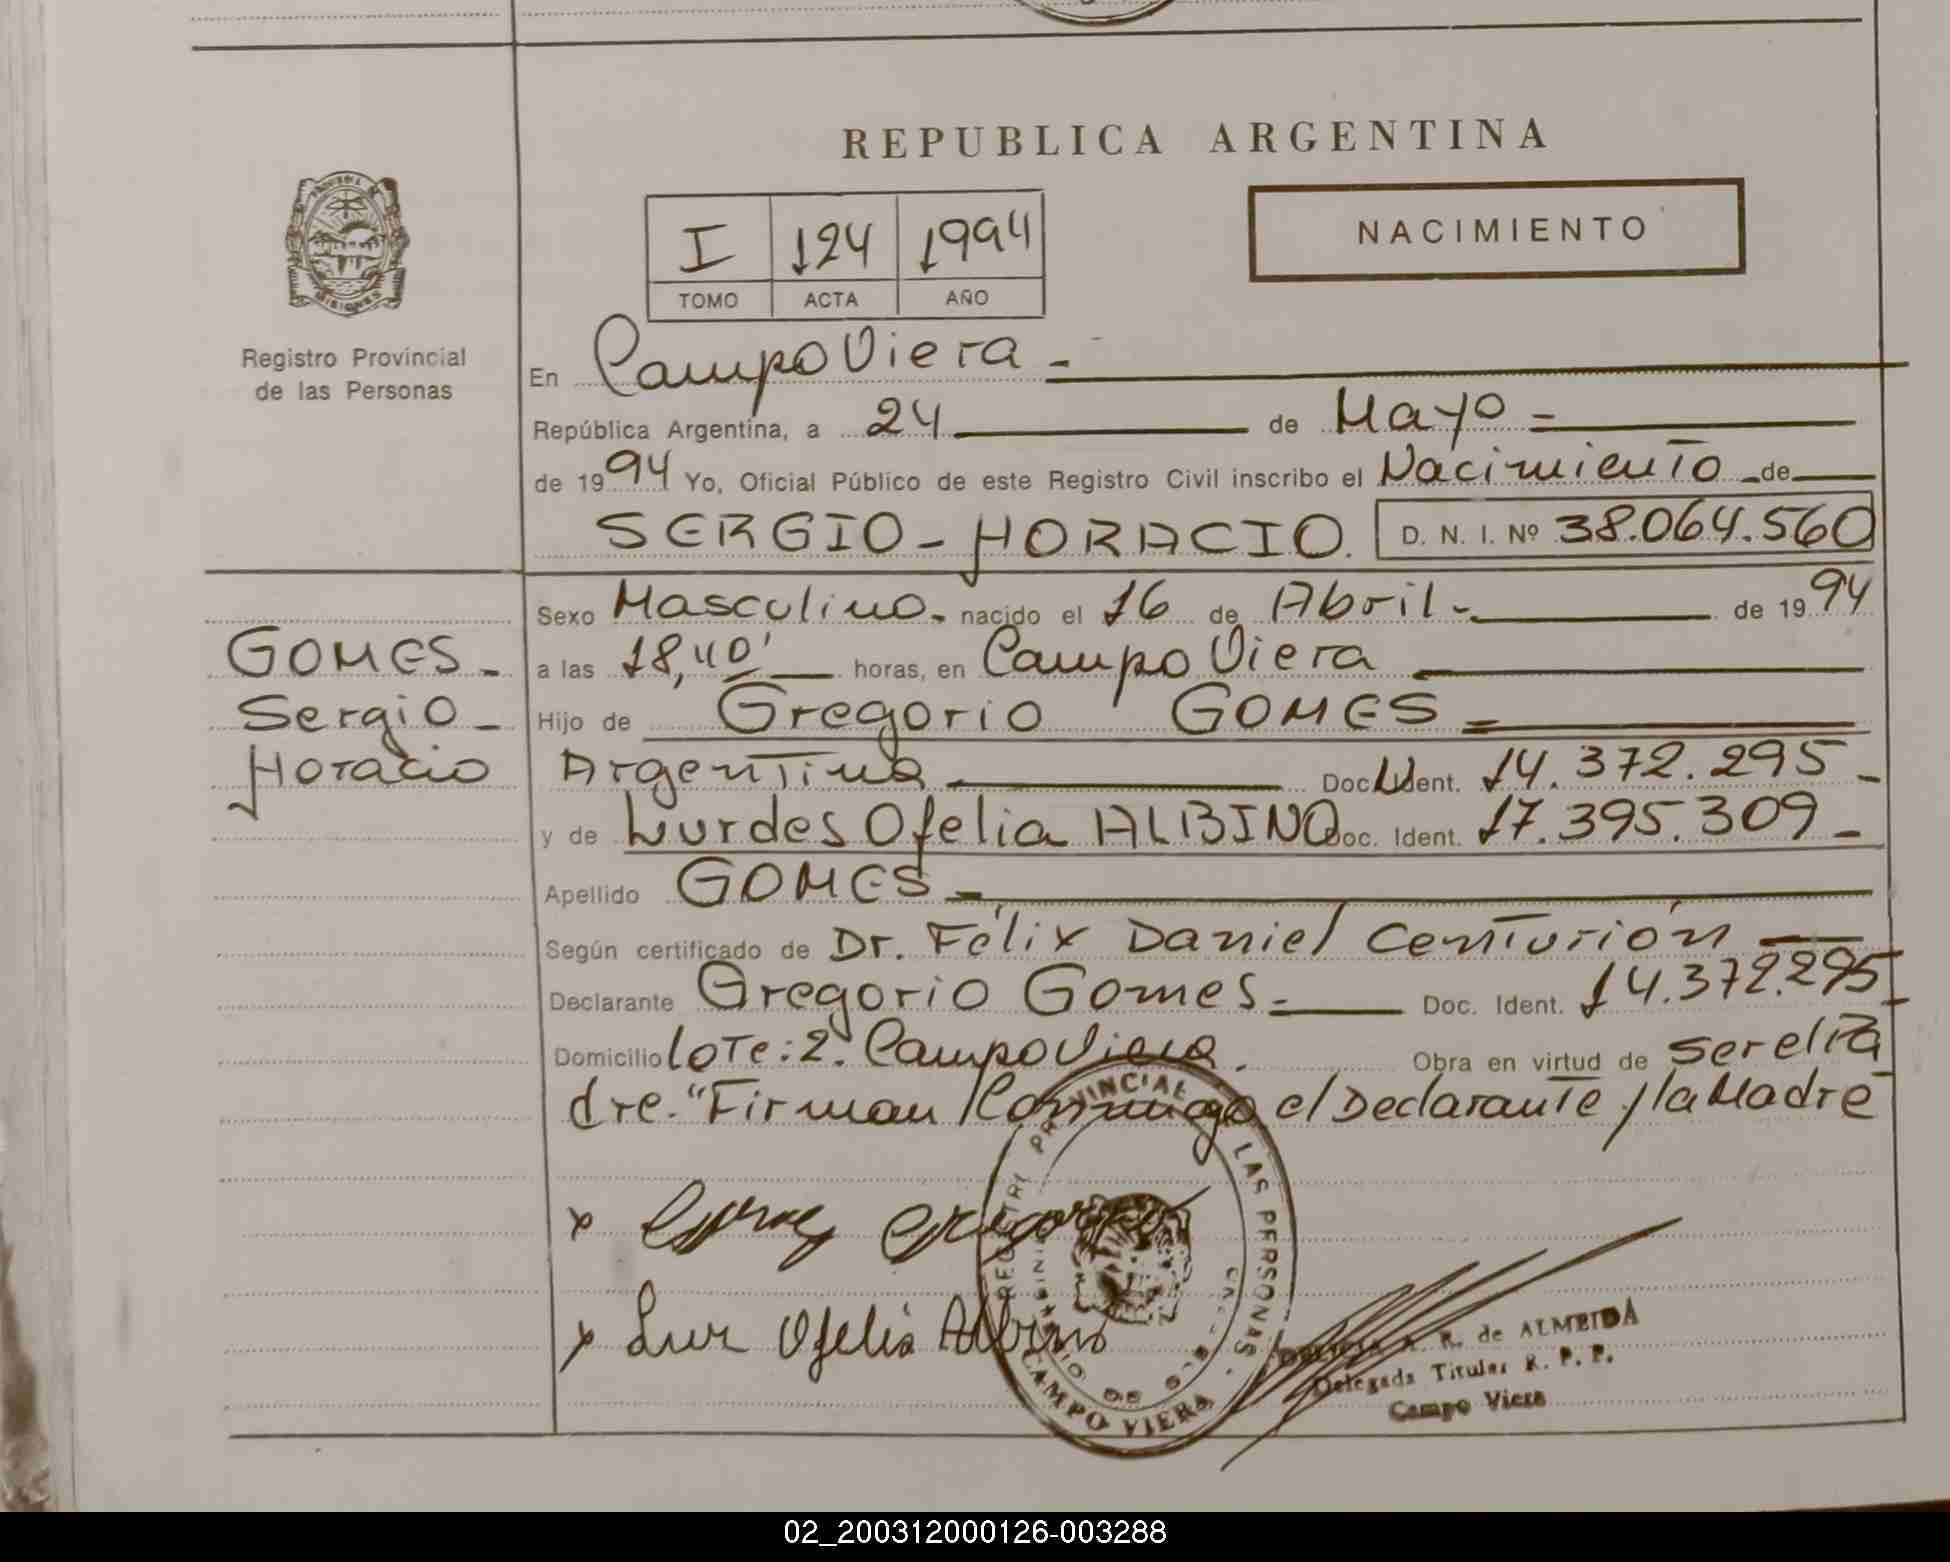 REPUBLICA ARGENTINA
MISIONES
Registro Provincial
de las Personas
I 124 1994
TOMO ACTA AÑO
NACIMIENTO
En Campo Viera -
República Argentina, a 24 de Mayo =
de 1994 Yo, Oficial Público de este Registro Civil inscribo el Nacimiento - de
SERGIO - HORACIO. D. N. I. Nº 38.064.560
GOMES -
Sergio -
Horacio
Sexo Masculino. nacido el 16 de Abril - de 1994
a las 18,40' horas, en Campo Viera
Hijo de Gregorio GOMES =
Argentina Doc. Ident. 14.372.295 -
y de Lurdes Ofelia ALBINO Doc. Ident. 17.395.309 -
Apellido GOMES -
Según certificado de Dr. Félix Daniel Centurión
Declarante Gregorio Gomes = Doc. Ident. 14.372.295 -
Domicilio Lote: 2. Campo Viera. Obra en virtud de ser el Pa
dre. "Firman Conmigo el Declarante y la Madre
x Gomez Gregorio
x Lur Ofelia Albino
PROVINCIAL LAS PERSONAS
CAMPO VIERA
A. R. de ALMEIDA
Delegada Titular R. P. P.
Campo Viera
02_200312000126-003288